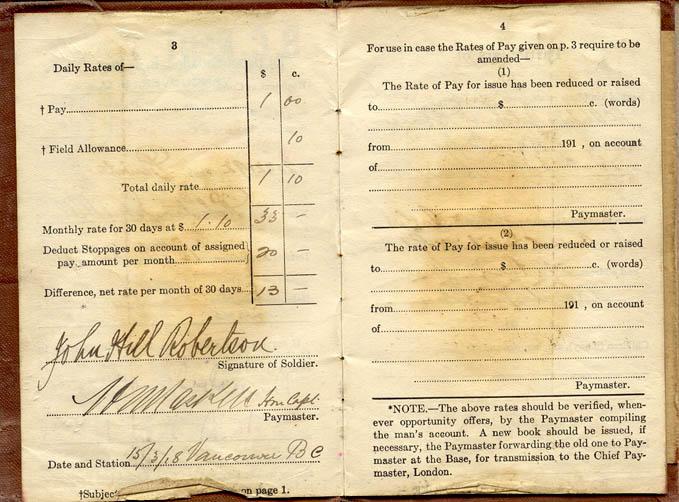 3
Daily Rates of—
$ c.
† Pay 1 00
† Field Allowance 10
Total daily rate 1 10
Monthly rate for 30 days at $ 1.10 33 —
Deduct Stoppages on account of assigned
pay amount per month 20 —
Difference, net rate per month of 30 days 13 —
John Hill Robertson.
Signature of Soldier.
Hon Capt
Paymaster.
Date and Station 15/3/18 Vancouver B C
†Subject on page 1.
4
For use in case the Rates of Pay given on p. 3 require to be
amended—
(1)
The Rate of Pay for issue has been reduced or raised
to $ c. (words)
from 191 , on account
of
Paymaster.
(2)
The rate of Pay for issue has been reduced or raised
to $ c. (words)
from 191 , on account
of
Paymaster.
*NOTE.—The above rates should be verified, when-
ever opportunity offers, by the Paymaster compiling
the man's account. A new book should be issued, if
necessary, the Paymaster forwarding the old one to Pay-
master at the Base, for transmission to the Chief Pay-
master, London.